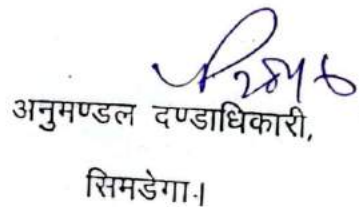 अनुमण्डल दण्डाधिकारी,
सिमडेगा।